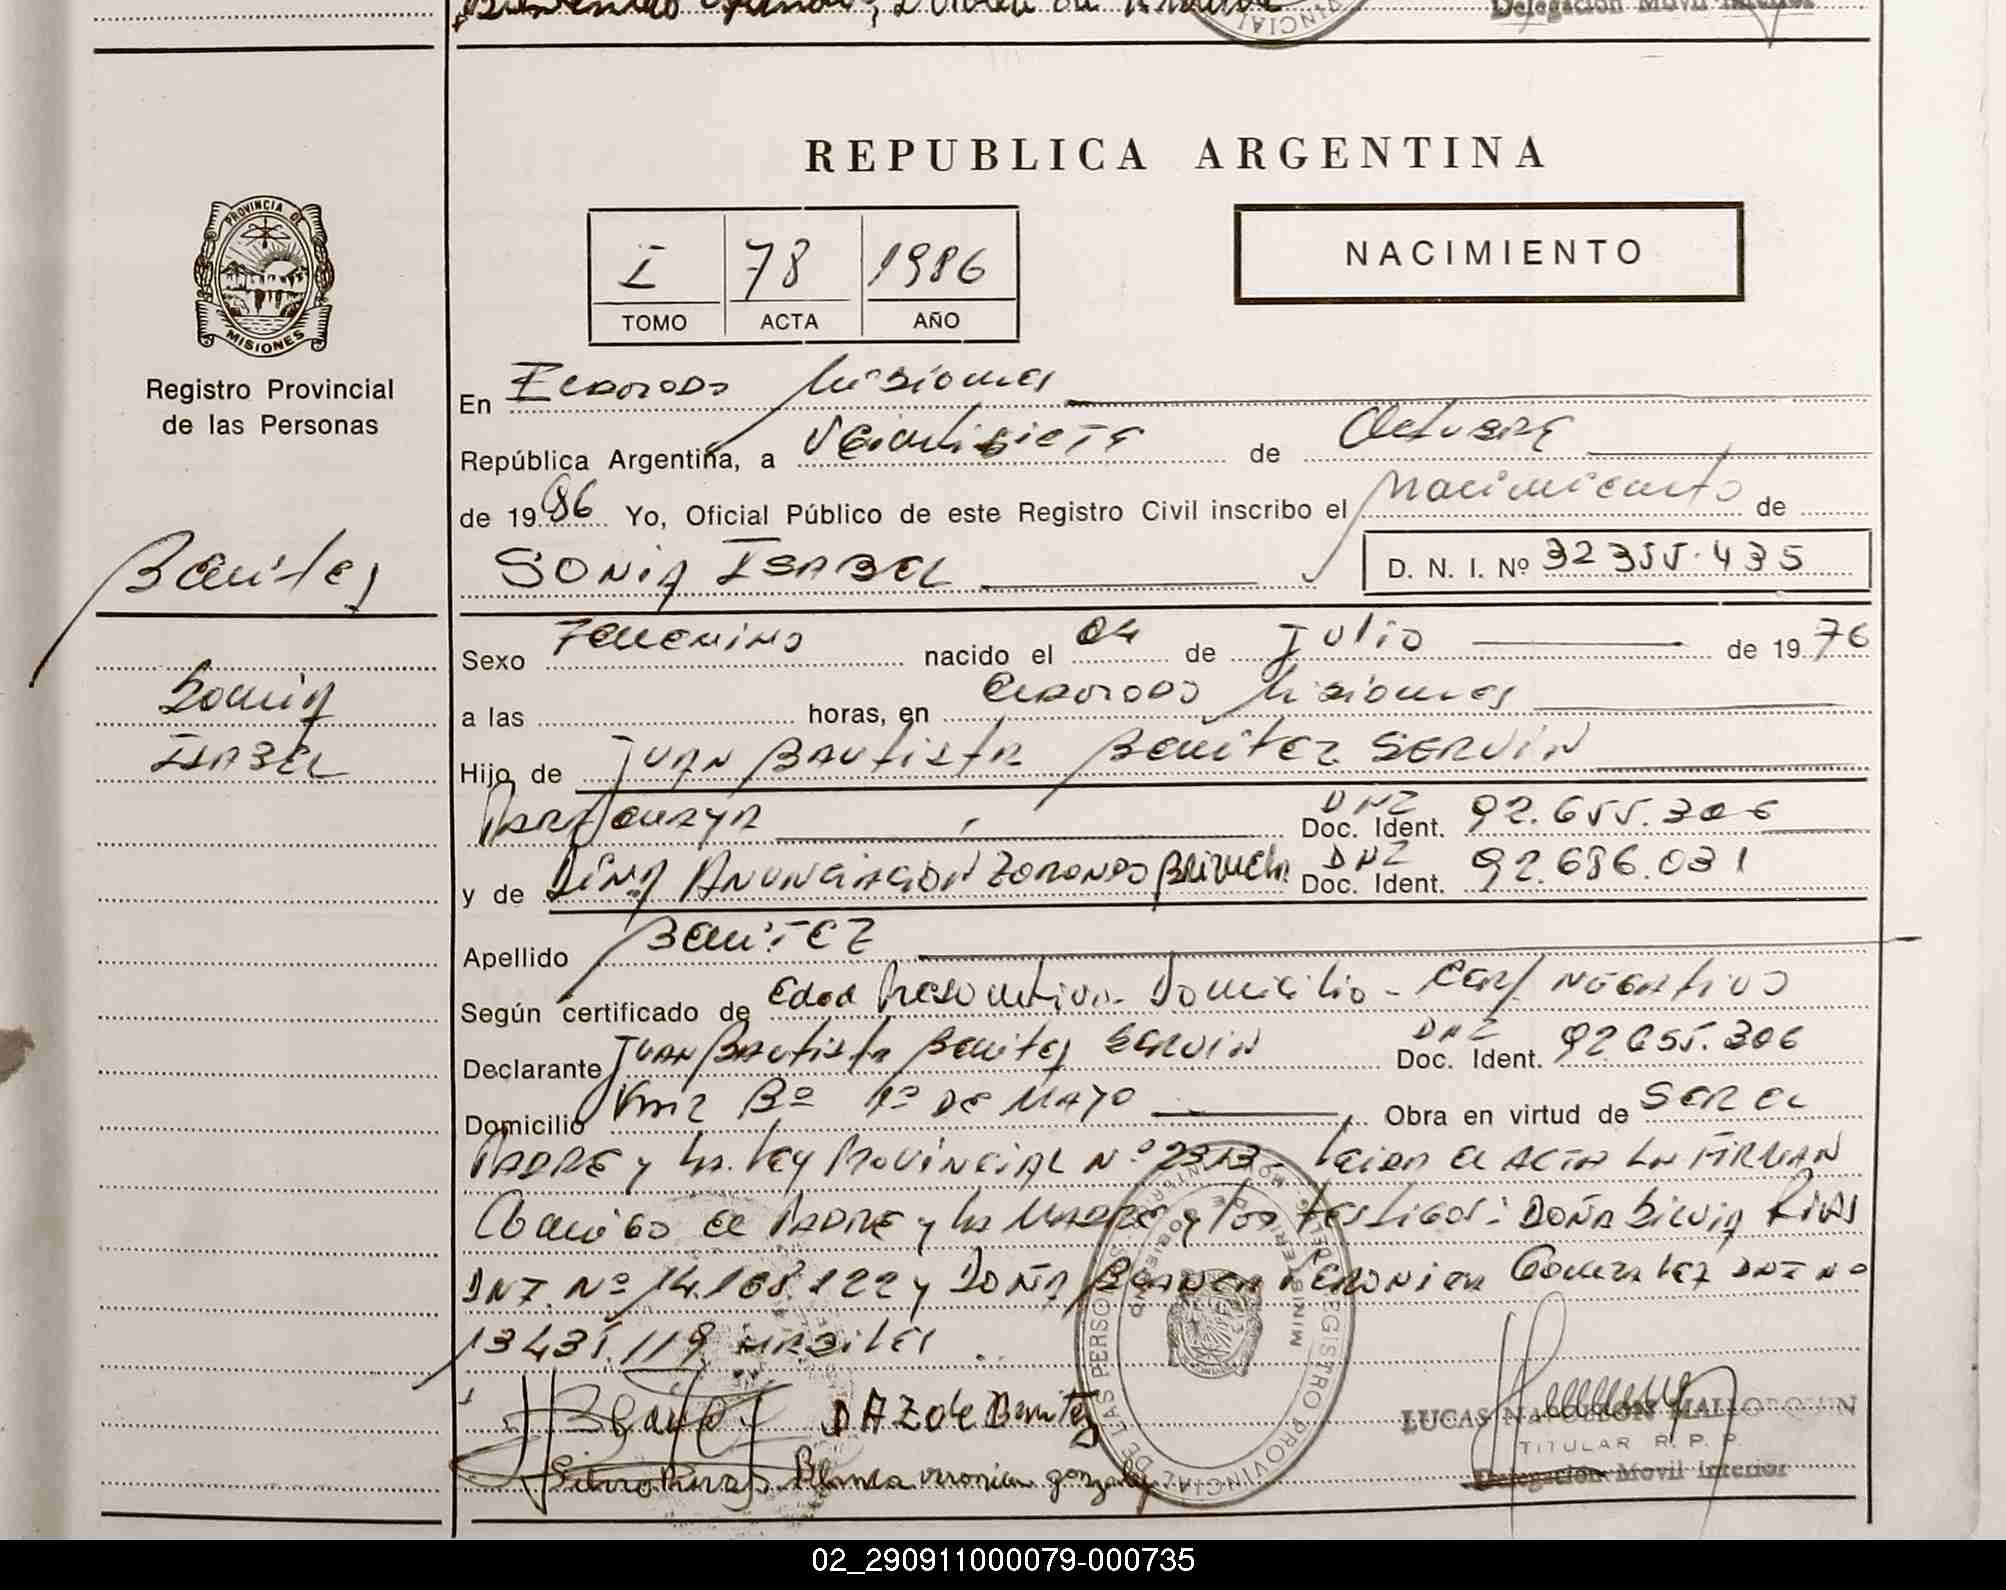 Delegación Movil Interior
REPUBLICA ARGENTINA
PROVINCIA DE
MISIONES
Registro Provincial
de las Personas
I 78 1986
TOMO ACTA AÑO
NACIMIENTO
En Eldorado Misiones
República Argentina, a Veintisiete de Octubre
de 1986 Yo, Oficial Público de este Registro Civil inscribo el Nacimiento de
Benitez
SONIA ISABEL D. N. I. Nº 32355.435
Sexo Femenino nacido el 04 de Julio de 1976
Sonia
a las horas, en Eldorado Misiones
ISABEL
Hijo de JUAN BAUTISTA Benitez SERVIN
Paraguaya DNI Doc. Ident. 92.655.306
y de Dina ANUNCIACION Brizuela DNI Doc. Ident. 92.686.031
Apellido BENITEZ
Según certificado de Edad Presuntiva - Domicilio - Cert NEGATIVO
Declarante JUAN Bautista Benitez SERVIN DNI Doc. Ident. 92655.306
Domicilio Bº 1º DE MAYO Obra en virtud de SER EL
PADRE y La Ley PROVINCIAL Nº 2313 - Leida el ACTA LA FIRMAN
Conmigo el PADRE y LA MADRE y los testigos: DOÑA Silvia Rivas
DNI. Nº 14.168.122 y DOÑA BLANCA VERONICA Gonzalez DNI Nº
13431.119 HABILES
D A Z de Benitez
Blanca veronica gonzalez
REGISTRO PROVINCIAL DE LAS PERSONAS
MINISTERIO DE GOBIERNO
LUCAS NAPOLEON MALLORQUIN
TITULAR R. P. P.
Delegación Movil Interior
02_290911000079-000735